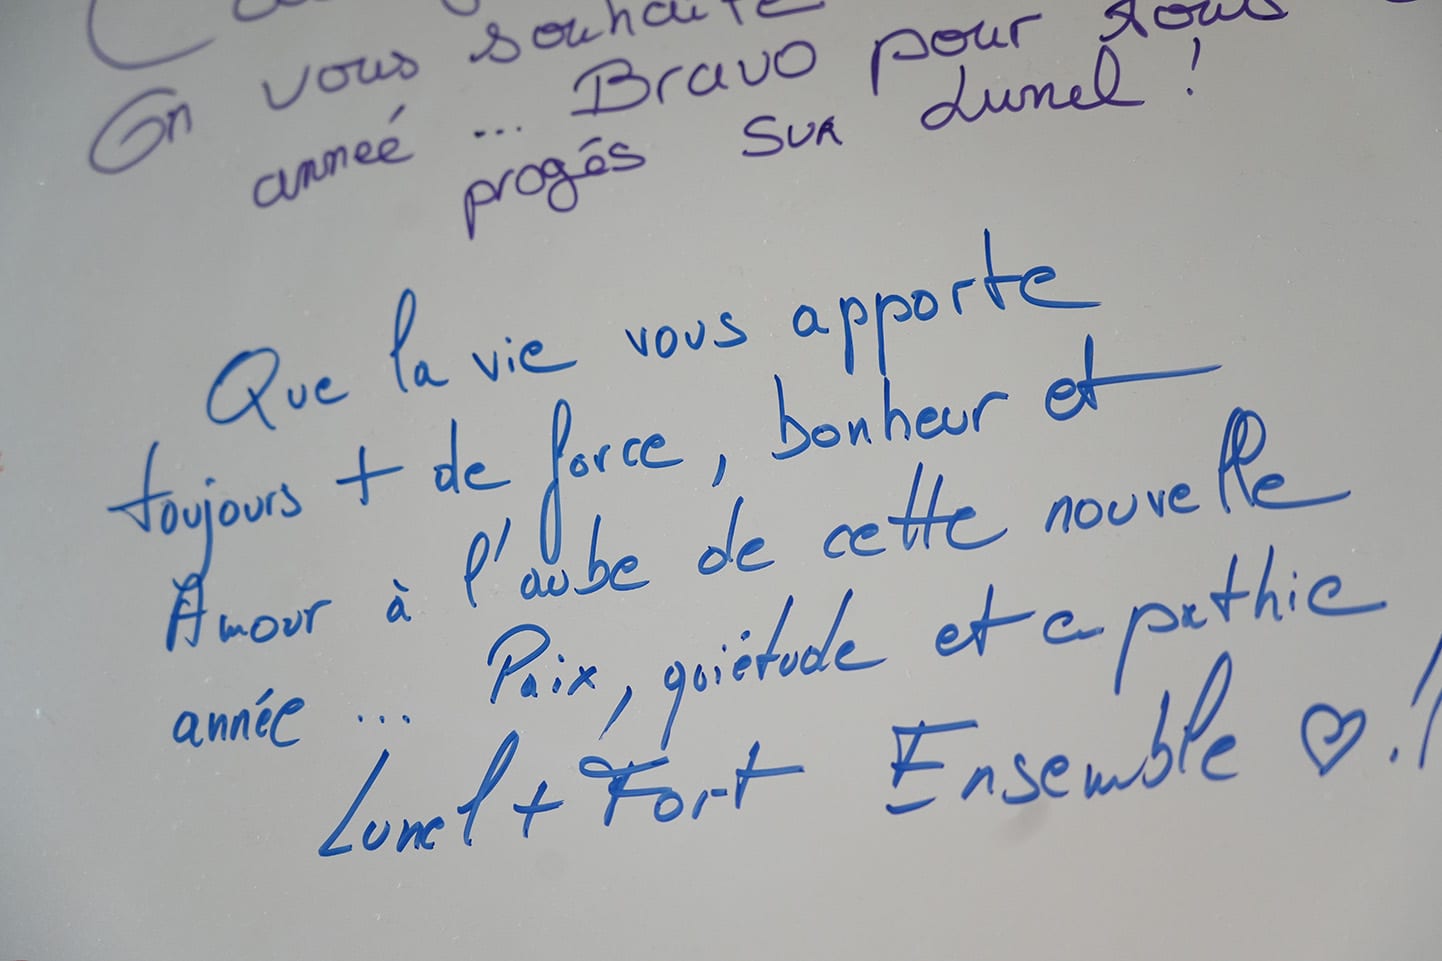 On vous souhaite
anneé ... Bravo pour tous
progés sur Lunel !
Que la vie vous apporte
toujours + de force, bonheur et
Amour à l'aube de cette nouvelle
année ... Paix, quiétude et apathie
Lunel + Fort Ensemble ♡.!